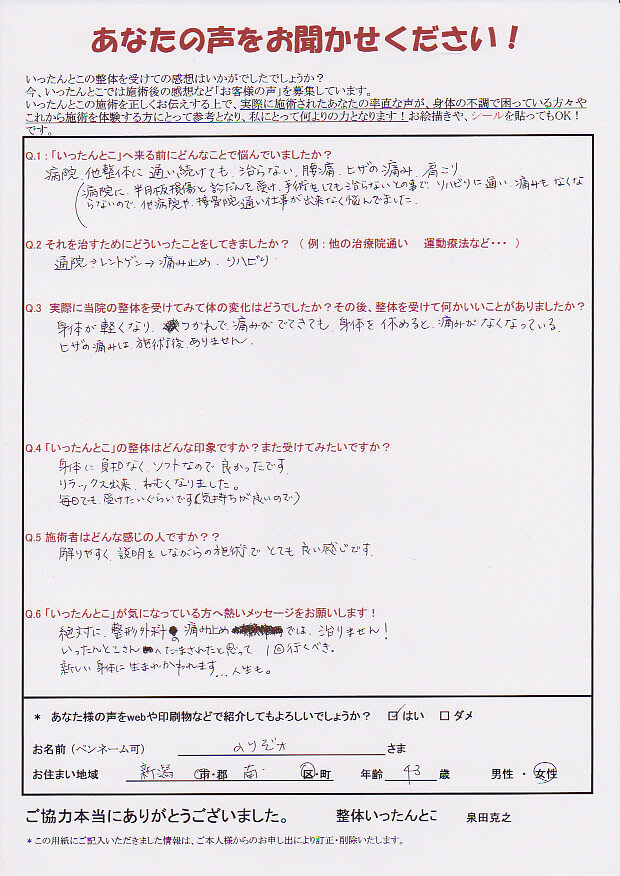 あなたの声をお聞かせください！
いったんとこの整体を受けての感想はいかがでしたでしょうか？
今、いったんとこでは施術後の感想など「お客様の声」を募集しています。
いったんとこの施術を正しくお伝えする上で、実際に施術されたあなたの率直な声が、身体の不調で困っている方々や
これから施術を体験する方にとって参考となり、私にとって何よりの力となります！お絵描きや、シールを貼ってもOK！
です。
Q.1：「いったんとこ」へ来る前にどんなことで悩んでいましたか？
病院、他整体に通い続けても、治らない、腰痛、ヒザの痛み、肩こり
(病院に、半月板損傷と診だんを受け、手術をしても治らないとの事で、リハビリに通い、痛みもなくな
らないので、他病院や、接骨院通い仕事が出来なく悩んでました.
Q.2 それを治すためにどういったことをしてきましたか？（例：他の治療院通い　運動療法など・・・）
通院→レントゲン→痛み止め、リハビリ
Q.3 実際に当院の整体を受けてみて体の変化はどうでしたか？その後、整体を受けて何かいいことがありましたか？
身体が軽くなり、つかれて、痛みがでてきても、身体を休めると、痛みがなくなっている.
ヒザの痛みは、施術後、ありません.
Q.4「いったんとこ」の整体はどんな印象ですか？また受けてみたいですか？
身体に負担なく、ソフトなので良かったです.
リラックス出来、ねむくなりました。
毎日でも、受けたいぐらいです(気持ちが良いので)
Q.5 施術者はどんな感じの人ですか？？
解りやすく、説明をしながらの施術でとても良い感じです.
Q.6「いったんとこ」が気になっている方へ熱いメッセージをお願いします！
絶対に、整形外科の痛み止めでは、治りません!
いったんとこさんへだまされたと思って1回行くべき.
新しい身体に生まれかわれます…人生も。
* あなた様の声をwebや印刷物などで紹介してもよろしいでしょうか？ ☑はい □ダメ
お名前（ペンネーム可） のりぞォ さま
お住まい地域 新潟 市・郡 南 区・町 年齢 43 歳 男性・女性
ご協力本当にありがとうございました。 整体いったんとこ 泉田克之
*この用紙にご記入いただきました情報は、ご本人様からのお申し出により訂正・削除いたします。